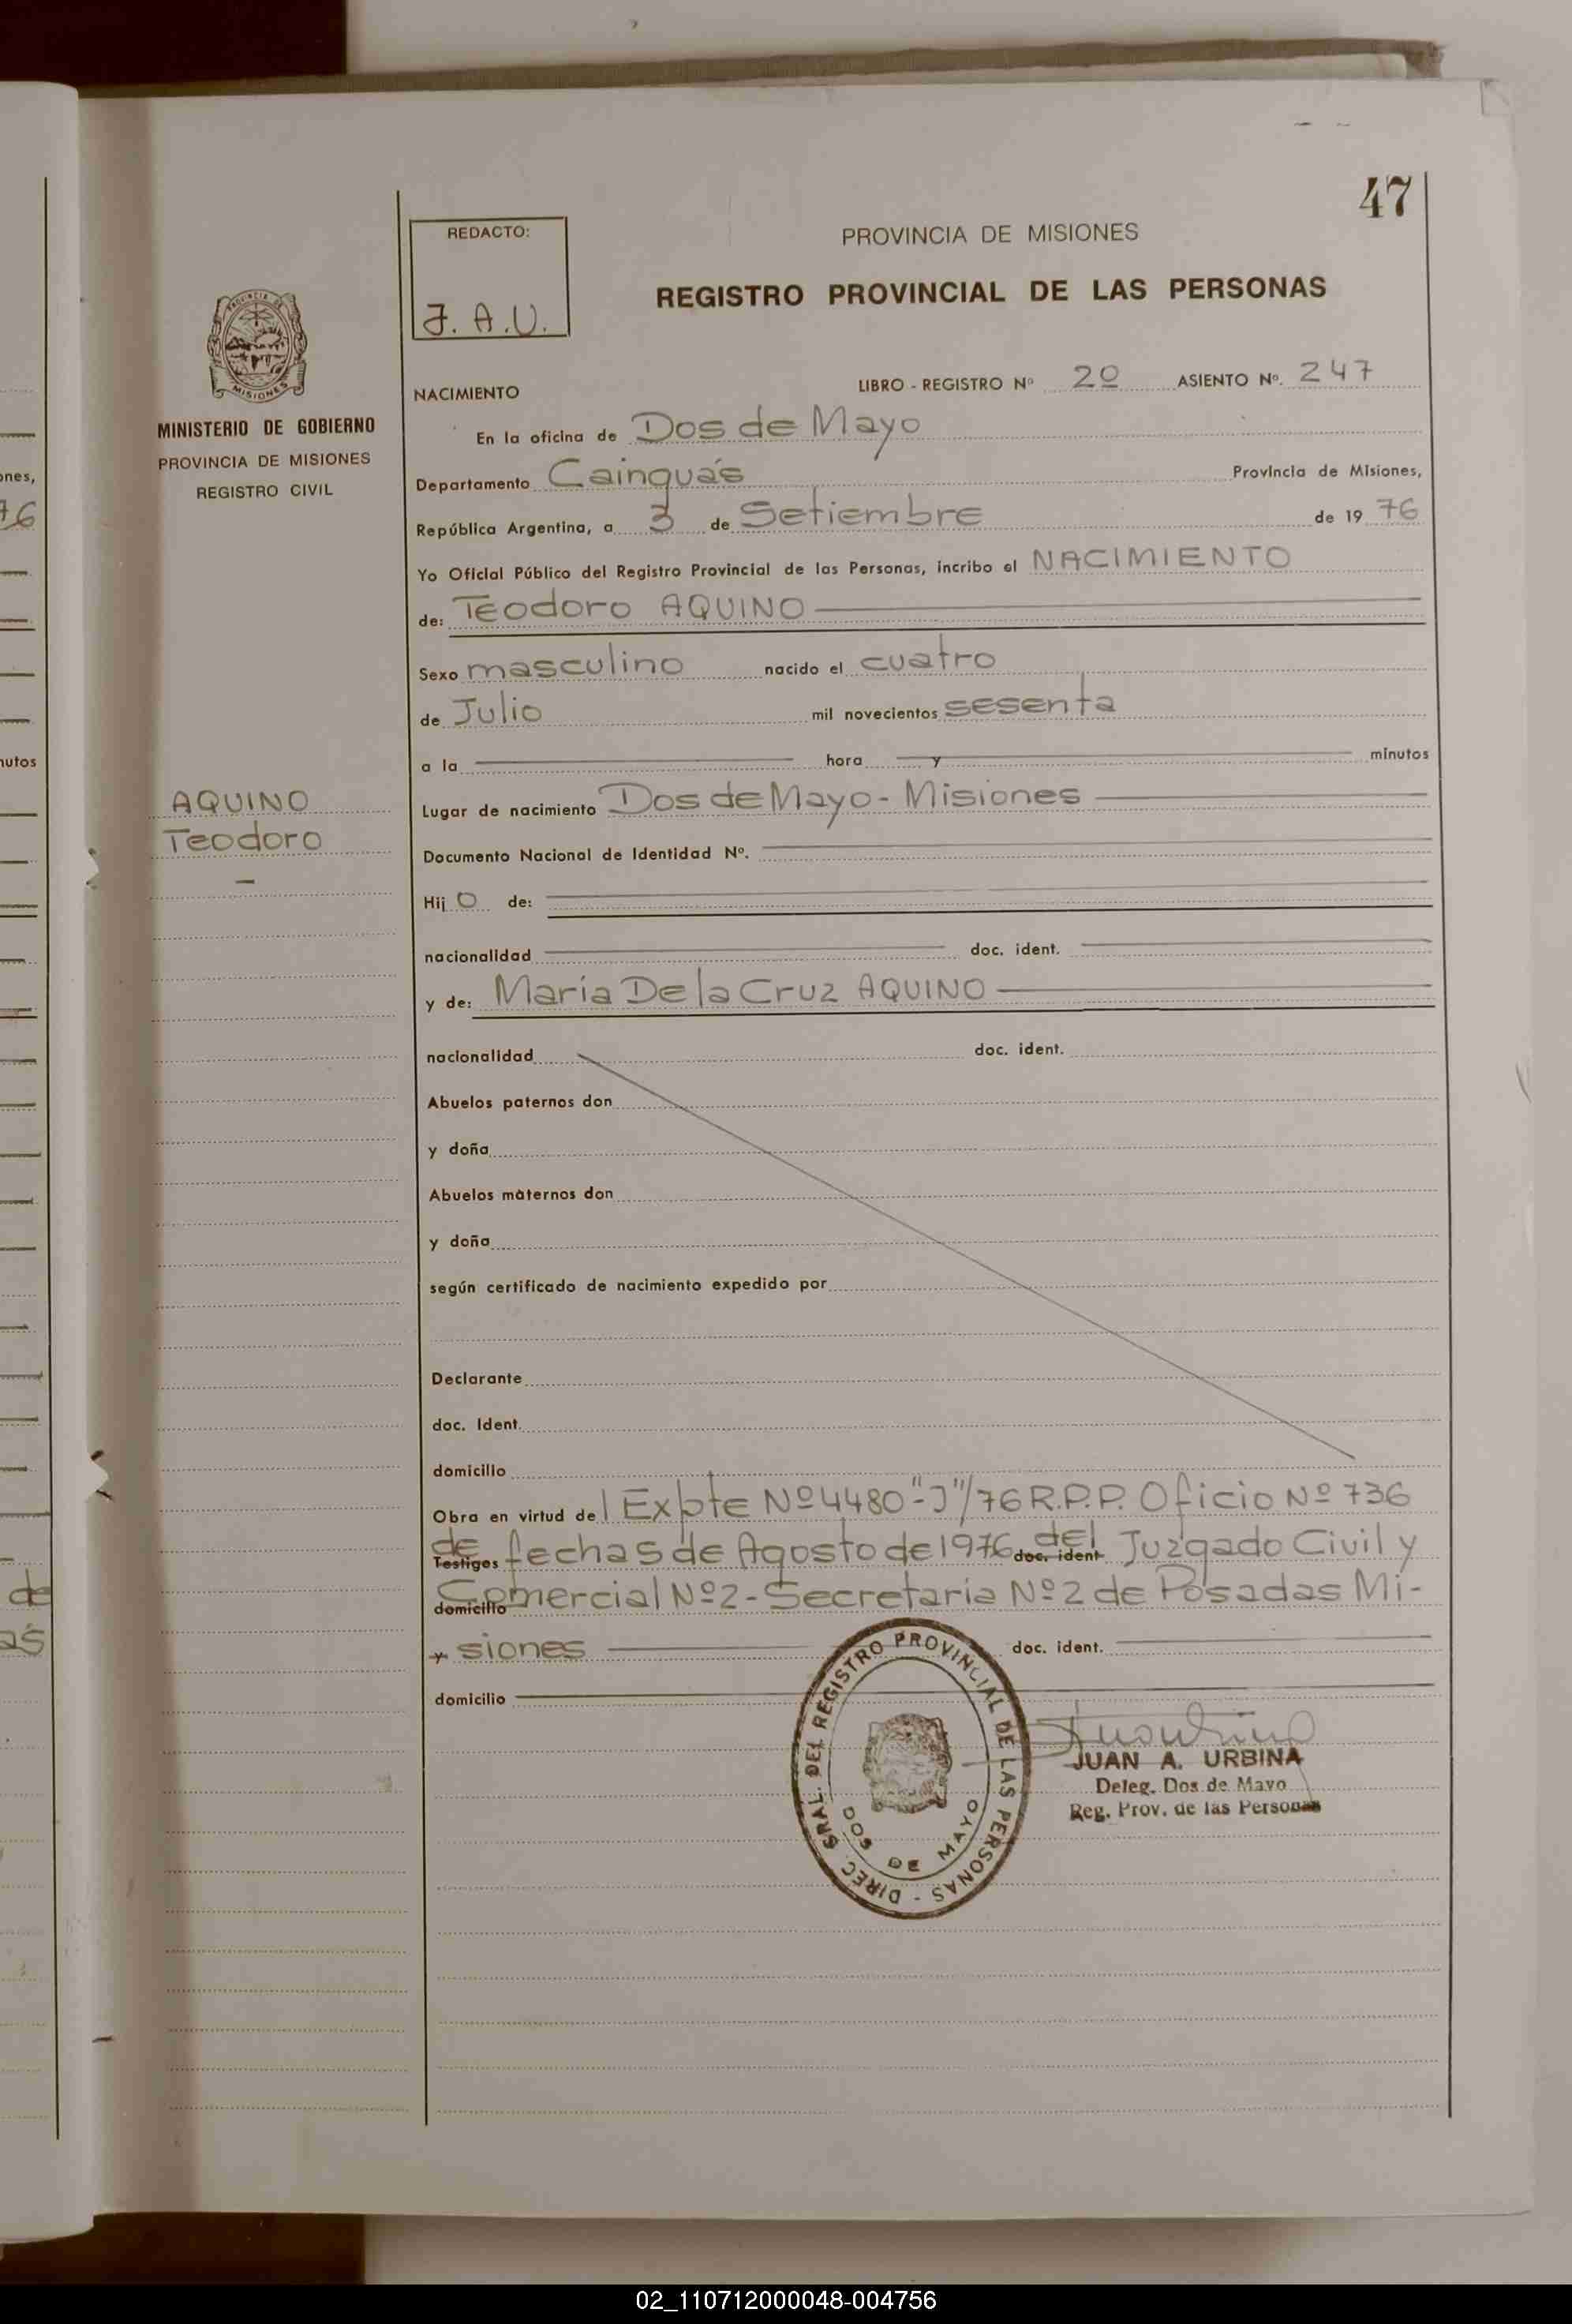 47
REDACTO:
J. A. U.
PROVINCIA DE MISIONES
REGISTRO PROVINCIAL DE LAS PERSONAS
PROVINCIA DE MISIONES
MINISTERIO DE GOBIERNO
PROVINCIA DE MISIONES
REGISTRO CIVIL
NACIMIENTO LIBRO - REGISTRO Nº 2º ASIENTO Nº. 247
En la oficina de Dos de Mayo
Departamento Cainguás Provincia de Misiones,
República Argentina, a 3 de Setiembre de 19 76
Yo Oficial Público del Registro Provincial de las Personas, incribo el NACIMIENTO
de: Teodoro AQUINO
Sexo masculino nacido el cuatro
de Julio mil novecientos sesenta
a la hora y minutos
AQUINO
Teodoro
Lugar de nacimiento Dos de Mayo - Misiones
Documento Nacional de Identidad Nº.
Hij o de:
nacionalidad doc. ident.
y de: María De la Cruz AQUINO
nacionalidad doc. ident.
Abuelos paternos don
y doña
Abuelos maternos don
y doña
según certificado de nacimiento expedido por
Declarante
doc. Ident.
domicilio
Obra en virtud de l Expte Nº 4480 "J"/76 R.P.P. Oficio Nº 736
Testigos de fechas 5 de Agosto de 1976 doc. ident del Juzgado Civil y
domicilio Comercial Nº 2 - Secretaria Nº 2 de Posadas Mi-
y siones doc. ident.
domicilio
DIREC. GRAL. DEL REGISTRO PROVINCIAL DE LAS PERSONAS -
DOS DE MAYO
JUAN A. URBINA
Deleg. Dos de Mayo
Reg. Prov. de las Personas
ones,
76
nutos
de
as
02_110712000048-004756